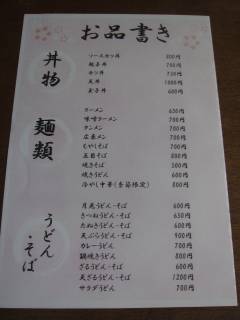 お品書き
丼物
ソースカツ丼 800円
親子丼 700円
カツ丼 750円
天丼 1000円
玉子丼 600円
麺類
ラーメン 650円
味噌ラーメン 700円
タンメン 700円
広東メン 700円
もやしそば 700円
五目そば 800円
焼きそば 500円
焼きうどん 600円
冷やし中華(季節限定) 800円
うどん・そば
月見うどん・そば 600円
きつねうどん・そば 650円
たぬきうどん・そば 600円
天ぷらうどん・そば 900円
カレーうどん 700円
鍋焼きうどん 800円
ざるうどん・そば 600円
天ざるうどん・そば 1200円
サラダうどん 700円